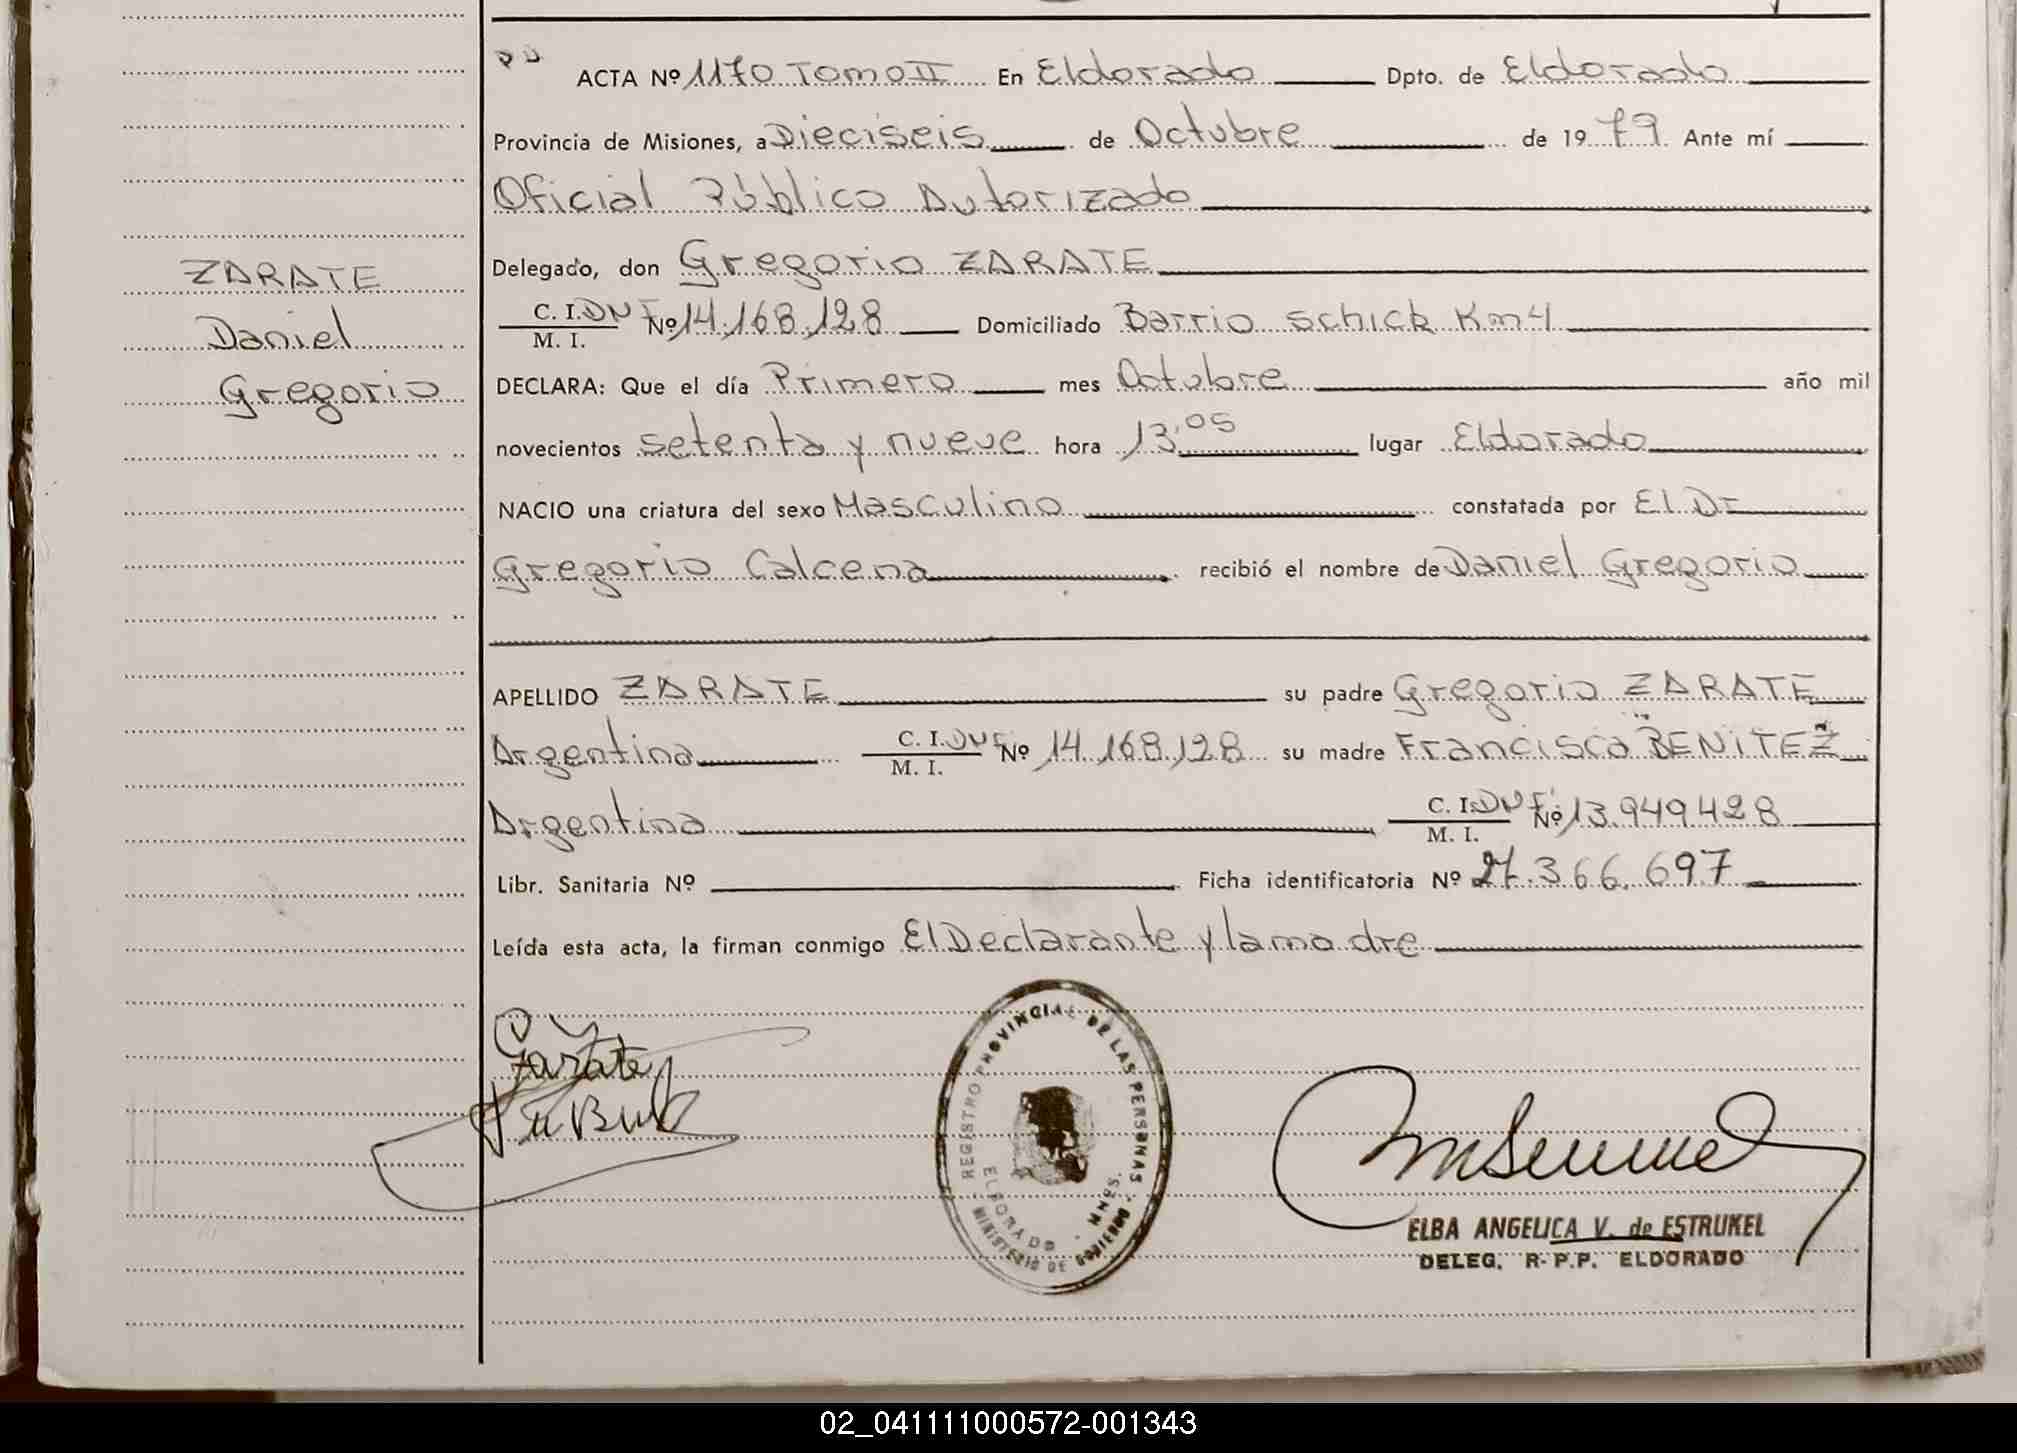 ACTA Nº 1170 Tomo II En Eldorado Dpto. de Eldorado
Provincia de Misiones, a Dieciseis de Octubre de 1979. Ante mí
Oficial Público Autorizado
ZARATE
Daniel
Gregorio
Delegado, don Gregorio ZARATE
C. I. DNI Nº 14.168.128 Domiciliado Barrio Schick Km 4
M. I.
DECLARA: Que el día Primero mes Octubre año mil
novecientos setenta y nueve hora 13,05 lugar Eldorado
NACIO una criatura del sexo Masculino constatada por El Dr
Gregorio Calcena recibió el nombre de Daniel Gregorio
APELLIDO ZARATE su padre Gregorio ZARATE
Argentina C. I. DNI Nº 14.168.128 su madre Francisca BENITEZ
M. I.
Argentina C. I. DNI Nº 13.949.428
M. I.
Libr. Sanitaria Nº Ficha identificatoria Nº 27.366.697
Leída esta acta, la firman conmigo El Declarante y la madre
Zarate
REGISTRO PROVINCIAL DE LAS PERSONAS
ELDORADO - MNES.
MINISTERIO DE GOBIERNO
ELBA ANGELICA V. de ESTRUKEL
DELEG. R-P.P. ELDORADO
02_041111000572-001343